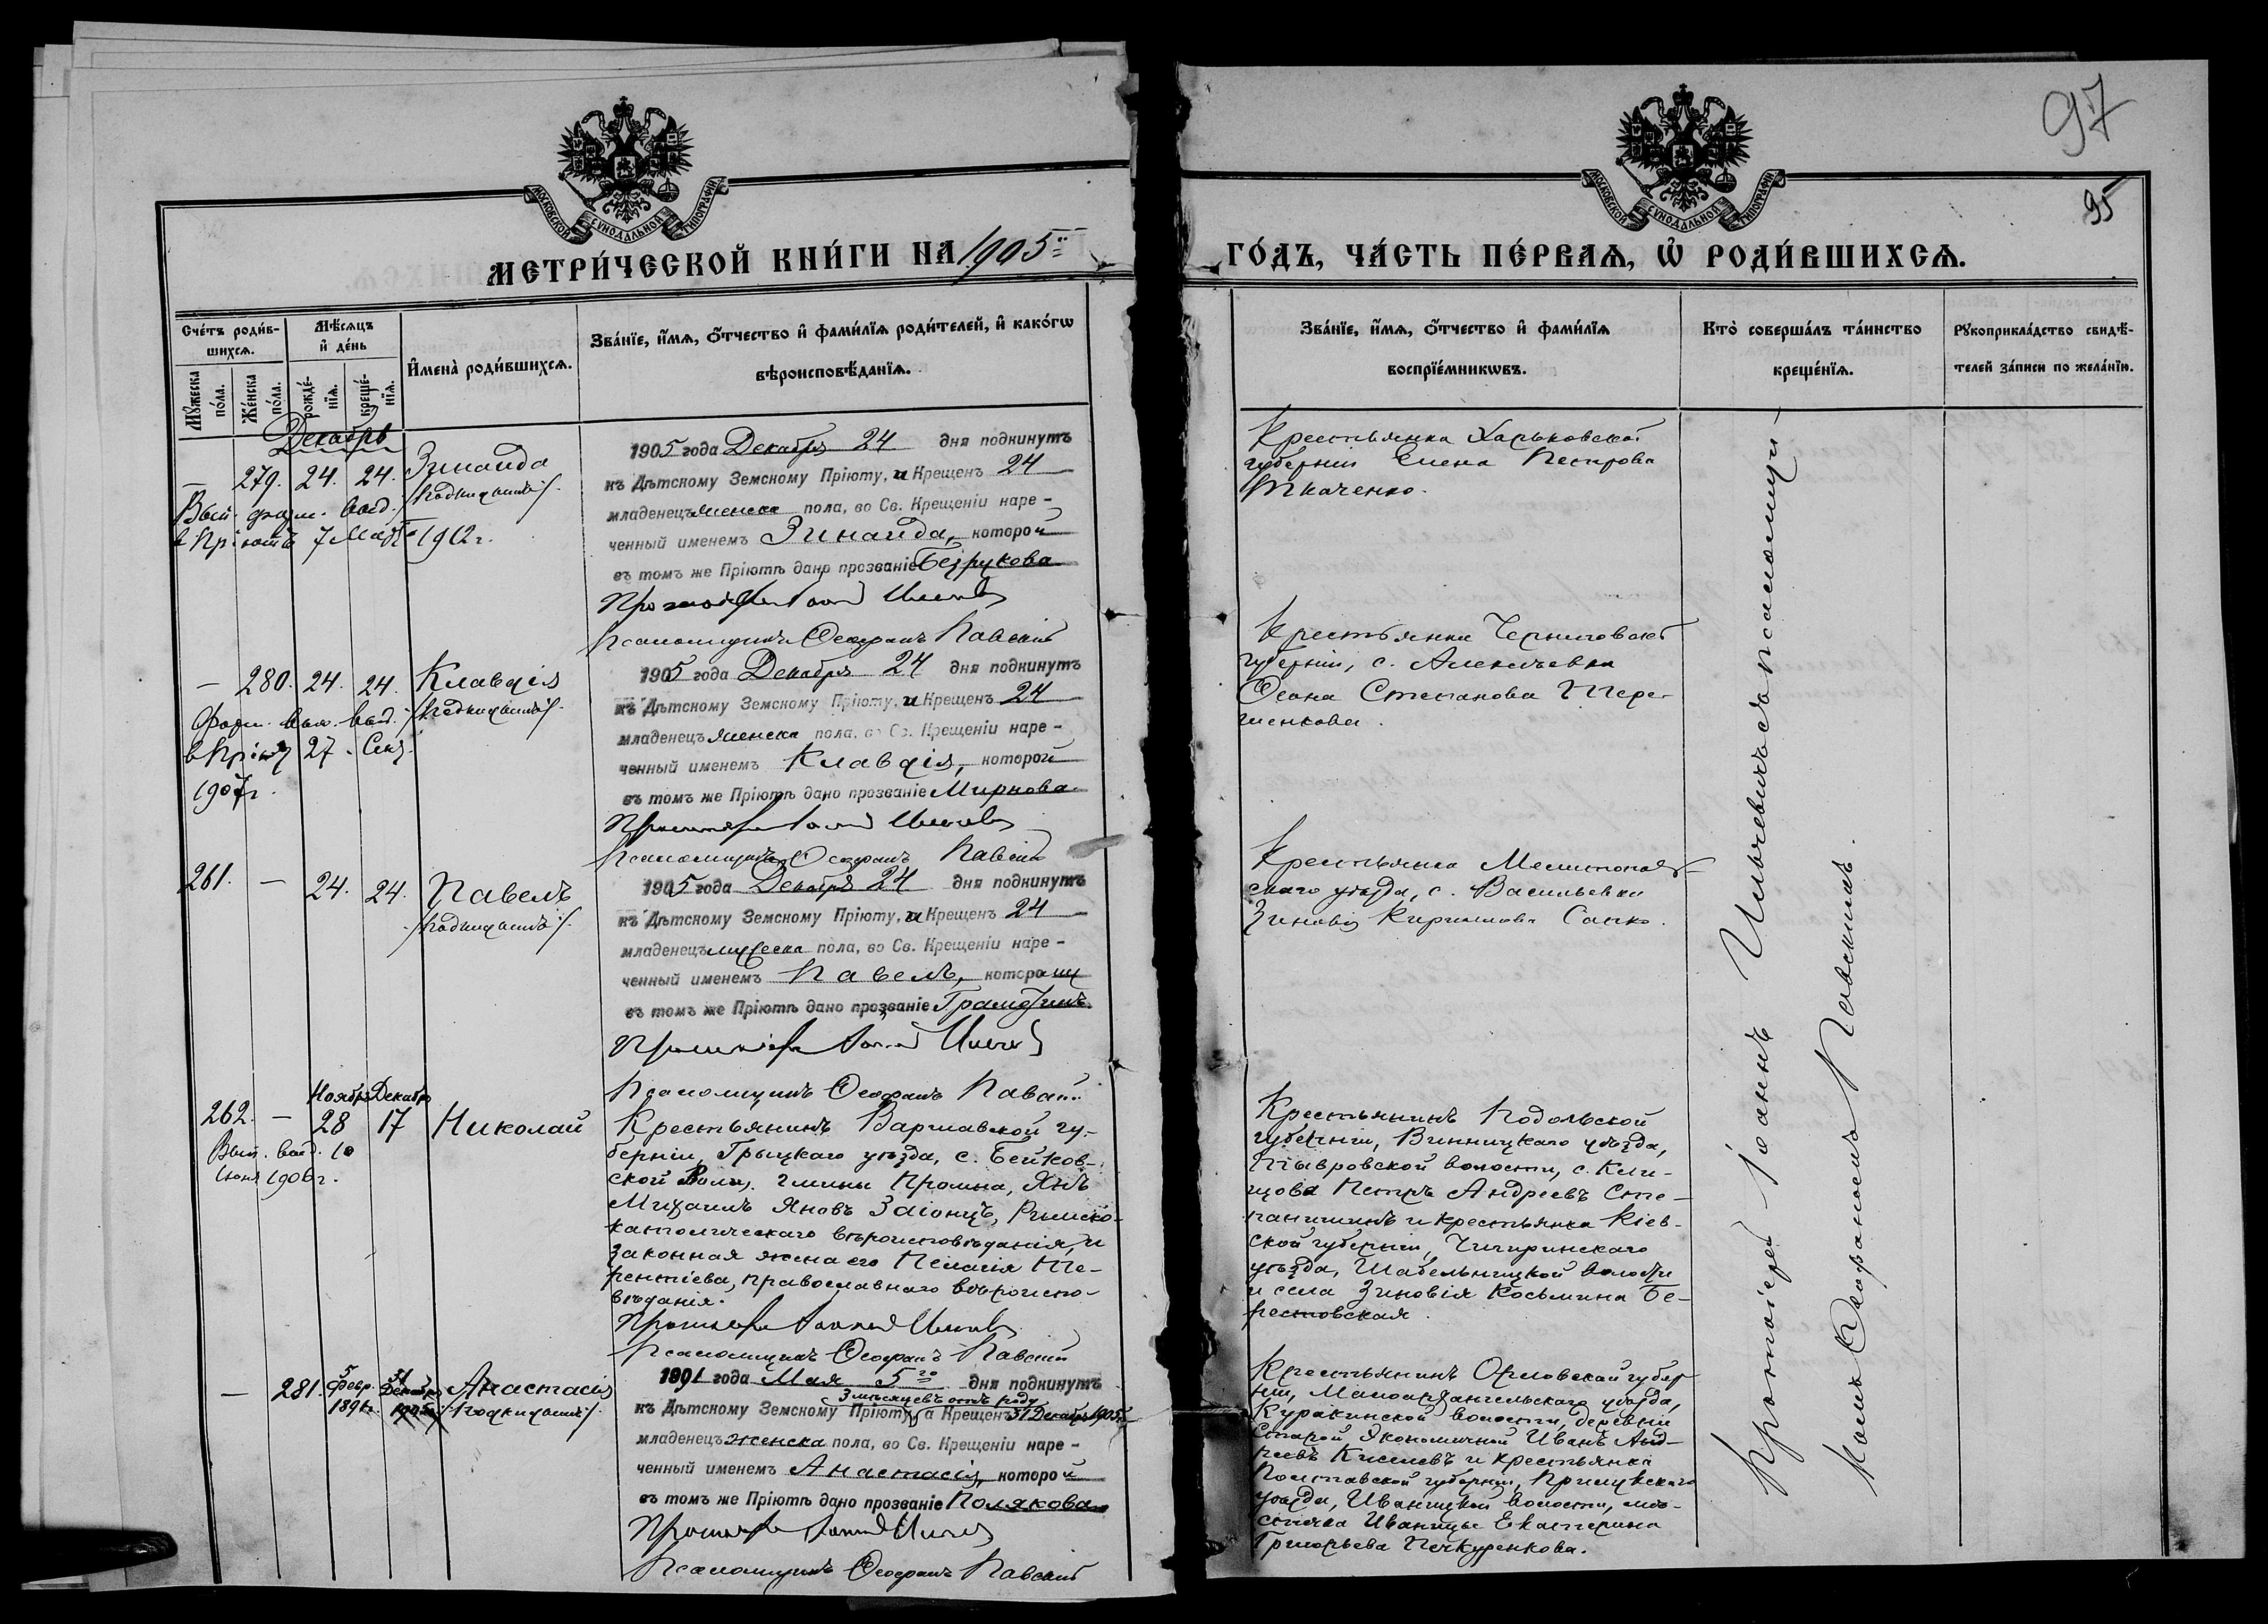 97
95
МОСКОВСКОЙ СѴНОДАЛЬНОЙ ТИПОГРАФІИ
МОСКОВСКОЙ СѴНОДАЛЬНОЙ ТИПОГРАФІИ
МЕТРИ́ЧЕСКОЙ КНИ́ГИ НА 1905
ГО́ДЪ, ЧА́СТЬ ПЕ́РВАѦ, Ѡ҆ РОДИ́ВШИХСѦ.
Сче́тъ роди́в-
шихсѧ.
Мꙋ́жеска
по́ла.
Же́нска
по́ла.
Мѣ́сѧцъ
и҆ де́нь
рожде́-
нїѧ.
креще́-
нїѧ.
И҆мена̀ роди́вшихсѧ.
Зва́нїе, и҆́мѧ, ѻ҆́тчество и҆ фами́лїѧ роди́телей, и҆ како́гѡ
вѣроисповѣ́данїѧ.
Зва́нїе, и҆́мѧ, ѻ҆́тчество и҆ фами́лїѧ
воспрїе́мникѡвъ.
Кто̀ соверша́лъ та́инство
креще́нїѧ.
Рꙋкоприкла́дство свидѣ́-
телей за́писи по жела́нїю.
Декабрь
— 279. 24. 24. Зинаида
/подкидышъ/.
в Пріютъ 7 1912 г.
1905 года Декабря 24 дня подкинутъ
къ Дѣтскому Земскому Пріюту, и Крещенъ 24
младенецъ женска пола, во Св. Крещеніи наре-
ченный именемъ Зинаида, которой
въ томъ же Пріютѣ дано прозваніе Безрукова
Псаломщикъ Ѳеофанъ Павскій
Крестьянка Харьковской
губерніи Елена Петрова
Ткаченко.
— 280. 24. 24. Клавдія
/подкидышъ/.
27 Сен.
1907 г.
1905 года Декабря 24 дня подкинутъ
къ Дѣтскому Земскому Пріюту, и Крещенъ 24
младенецъ женска пола, во Св. Крещеніи наре-
ченный именемъ Клавдія, которой
въ томъ же Пріютѣ дано прозваніе Мирнова
Псаломщикъ Ѳеофанъ Павскій
Крестьянка Черниговской
губерніи, с. Алексѣевка
Степанова Тере-
щенкова.
261. — 24. 24. Павелъ
/подкидышъ/.
1905 года Декабря 24 дня подкинутъ
къ Дѣтскому Земскому Пріюту, и Крещенъ 24
младенецъ мужеска пола, во Св. Крещеніи наре-
ченный именемъ Павелъ, которому
въ томъ же Пріютѣ дано прозваніе
Псаломщикъ Ѳеофанъ Павскій
Крестьянка Мелитополь-
скаго уѣзда, с. Васильевки
Зиновія Кириллова Сапко.
Ноябрь Декабрь
262. — 28 17 Николай
Выд. 10
Іюня 1906 г.
Крестьянинъ Варшавской гу-
берніи, Грыцкаго уѣзда, с. Бейков-
ской Воли, гмины Промна, Янъ
Михаилъ Яновъ Заіонцъ, Римско-
католическаго вѣроисповѣданія, и
законная жена его Пелагія Те-
рентіева, православнаго вѣроиспо-
вѣданія.
Псаломщикъ Ѳеофанъ Павскій
Крестьянинъ Подольской
губерніи, Винницкаго уѣзда,
Тывровской волости, с. Кли-
щова Петръ Андреевъ Сте-
панишинъ и крестьянка Кіев-
ской губерніи, Чигиринскаго
уѣзда, Шабельницкой волости
и села Зиновія Косьмина Бе-
рестовская.
— 281. 5 Февр. 1891 г. 31 Декабря Анастасія
/подкидышъ/.
1891 года Мая 5го дня подкинутъ
3 мѣсяцевъ отъ роду
къ Дѣтскому Земскому Пріюту, а Крещенъ 31 Декабря 1905 г.
младенецъ женска пола, во Св. Крещеніи наре-
ченный именемъ Анастасія, которой
въ томъ же Пріютѣ дано прозваніе Полякова
Псаломщикъ Ѳеофанъ Павскій
Крестьянинъ Орловской губер-
ніи, Малоархангельскаго уѣзда,
Куракинской волости, деревни
Старой Экономичной Иванъ Анд-
реевъ Киселевъ и крестьянка
Полтавской губерніи, Прилукскаго
уѣзда, Иваницкой волости, мѣс-
течка Иваницы Екатерина
Григорьева Печкуренкова.
Протоіерей Іоаннъ Ильчевичъ съ псаломщи-
комъ Ѳеофаномъ Павскимъ.